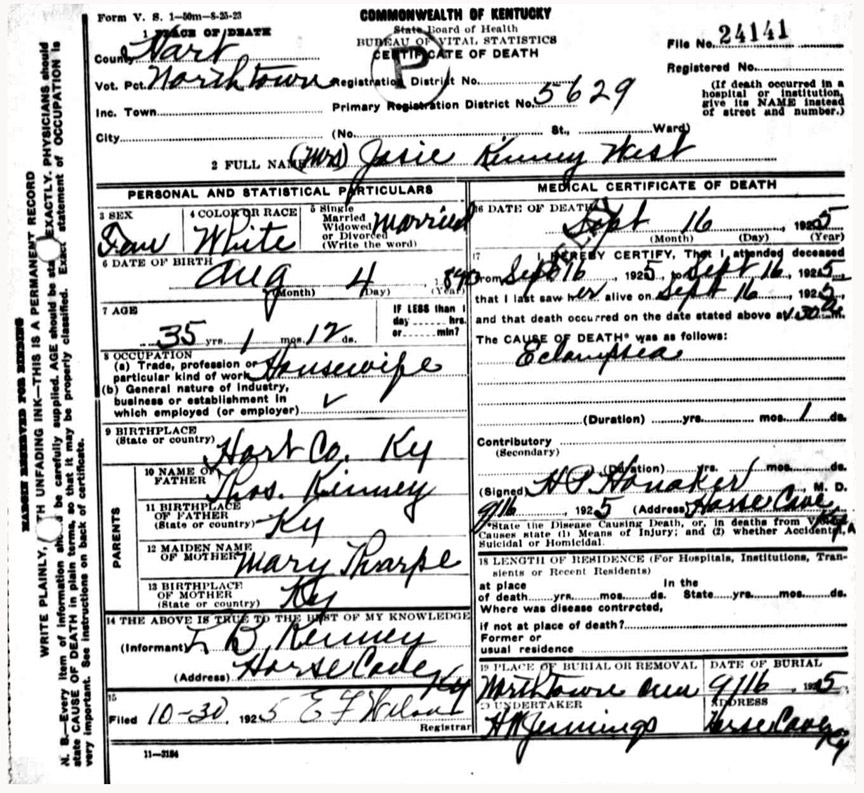 Form V. S. 1—50m—8-25-23
COMMONWEALTH OF KENTUCKY
State Board of Health
BUREAU OF VITAL STATISTICS
CERTIFICATE OF DEATH
File No. 24141
Registered No.
(If death occurred in a hospital or institution, give its NAME instead of street and number.)
1 PLACE OF DEATH
County Hart
Vot. Pct. Northtown Registration District No.
Inc. Town Primary Registration District No. 5629
City (No. St., Ward)
P
2 FULL NAME (Mrs) Josie Kinney West
PERSONAL AND STATISTICAL PARTICULARS
3 SEX
Fem
4 COLOR OR RACE
White
5 Single
Married
Widowed
or Divorced
(Write the word)
Married
6 DATE OF BIRTH
Aug 4 1890
(Month) (Day) (Year)
7 AGE
35 yrs. 1 mos. 12 ds.
IF LESS than 1
day hrs.
or min?
8 OCCUPATION
(a) Trade, profession or
particular kind of work Housewife
(b) General nature of industry,
business or establishment in
which employed (or employer)
9 BIRTHPLACE
(State or country) Hart Co. Ky
PARENTS
10 NAME OF
FATHER Thos. Kinney
11 BIRTHPLACE
OF FATHER
(State or country) Ky
12 MAIDEN NAME
OF MOTHER Mary Tharpe
13 BIRTHPLACE
OF MOTHER
(State or country) Ky
14 THE ABOVE IS TRUE TO THE BEST OF MY KNOWLEDGE
(Informant) L B Kinney
(Address) Horse Cave Ky
15
Filed 10-30, 1925 E F Wilson
Registrar
11—3184
MEDICAL CERTIFICATE OF DEATH
16 DATE OF DEATH
Sept 16, 1925
(Month) (Day) (Year)
17 I HEREBY CERTIFY, That I attended deceased
from Sept 16, 1925, to Sept 16, 1925,
that I last saw her alive on Sept 16, 1925,
and that death occurred on the date stated above at m.
The CAUSE OF DEATH* was as follows:
Eclampsea
(Duration) yrs. mos. 1 ds.
Contributory
(Secondary)
(Duration) yrs. mos. ds.
(Signed) H P Honaker M. D.
9/16, 1925 (Address) Horse Cave Ky
*State the Disease Causing Death, or, in deaths from Violent
Causes state (1) Means of Injury; and (2) whether Accidental,
Suicidal or Homicidal.
18 LENGTH OF RESIDENCE (For Hospitals, Institutions, Transients or Recent Residents)
at place In the
of death yrs. mos. ds. State yrs. mos. ds.
Where was disease contracted,
if not at place of death?
Former or
usual residence
19 PLACE OF BURIAL OR REMOVAL
Northtown
DATE OF BURIAL
9/16 1925
20 UNDERTAKER
H W Jennings
ADDRESS
Horse Cave Ky
MARGIN RESERVED FOR BINDING
WRITE PLAINLY, WITH UNFADING INK—THIS IS A PERMANENT RECORD
N. B.—Every item of information should be carefully supplied. AGE should be stated EXACTLY. PHYSICIANS should
state CAUSE OF DEATH in plain terms, so that it may be properly classified. Exact statement of OCCUPATION is
very important. See instructions on back of certificate.